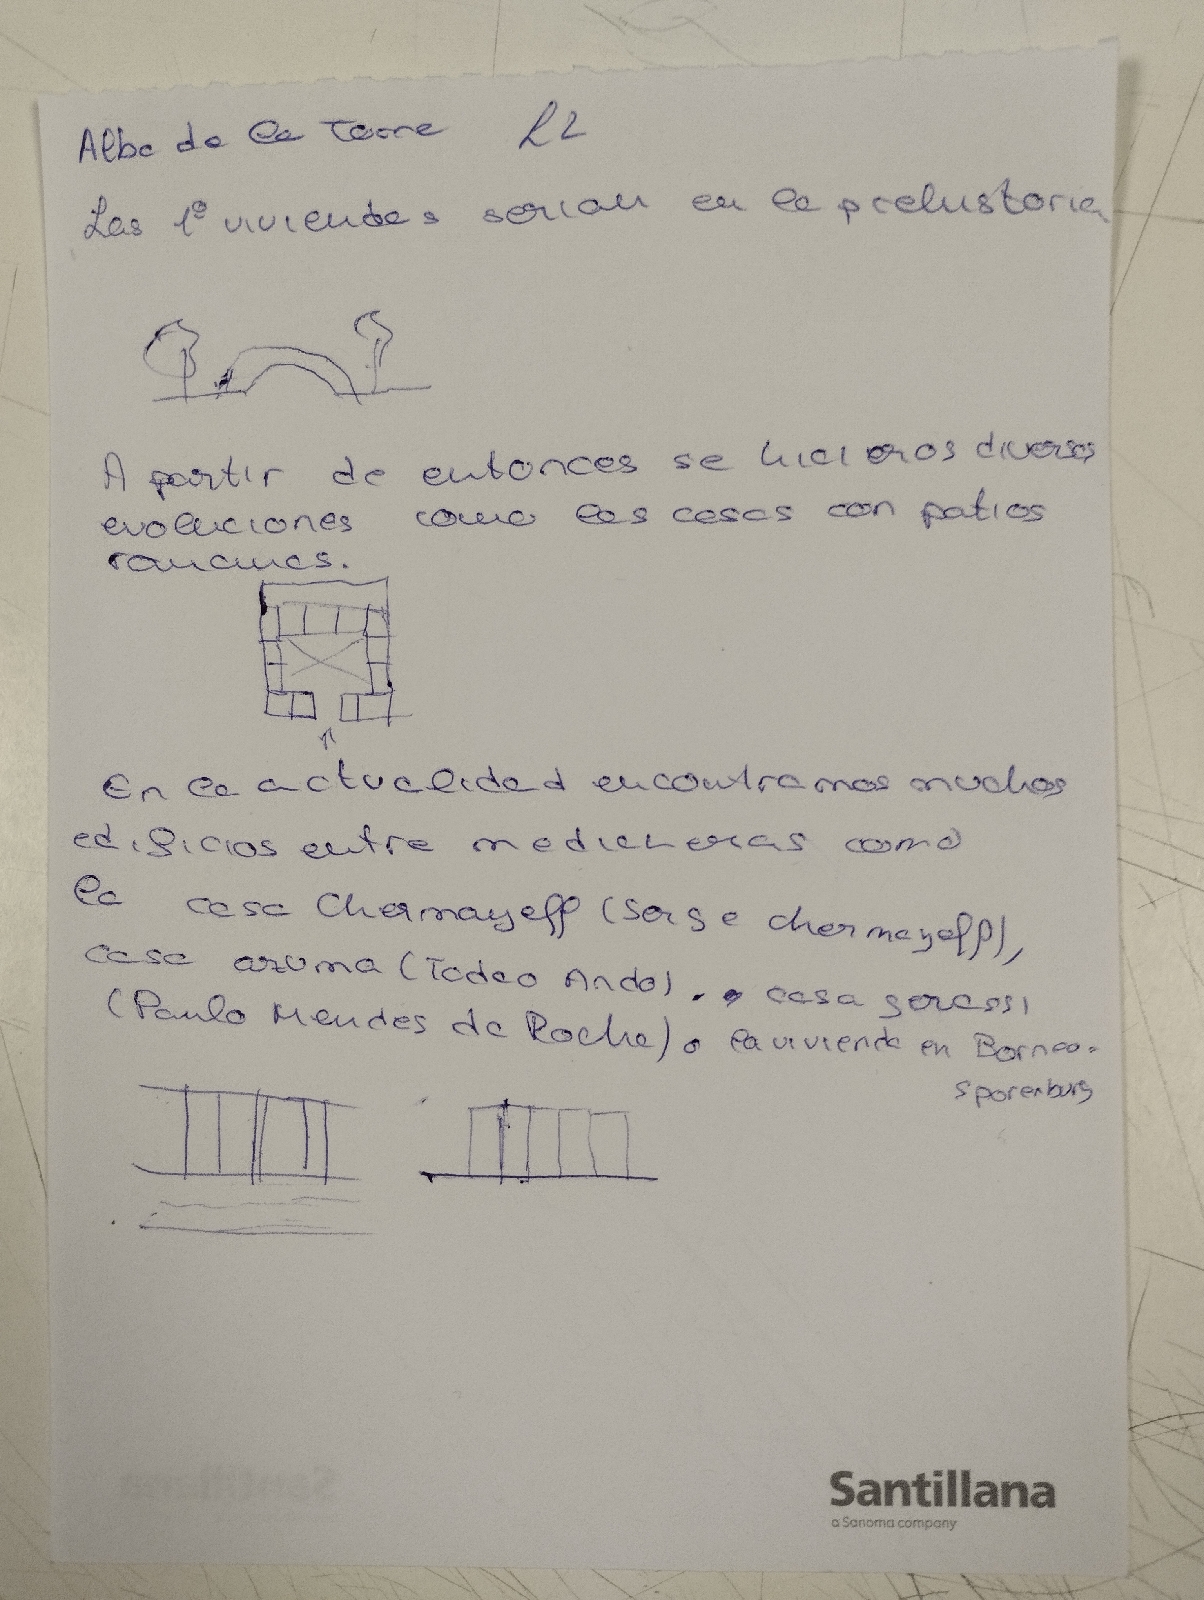 Alba de la Torre L2
Las 1º viviendas serían en la prehistoria
A partir de entonces se hicieros diversas
evoluciones como las casas con patios
romanas.
En la actualidad encontramos muchos
edificios entre medianeras como
la casa Chermayeff (Serge Chermayeff),
casa azuma (Tadao Ando), casa gerassi
(Paulo Mendes da Rocha) o la vivienda en Borneo-
Sporenburg
Santillana
a Sanoma company